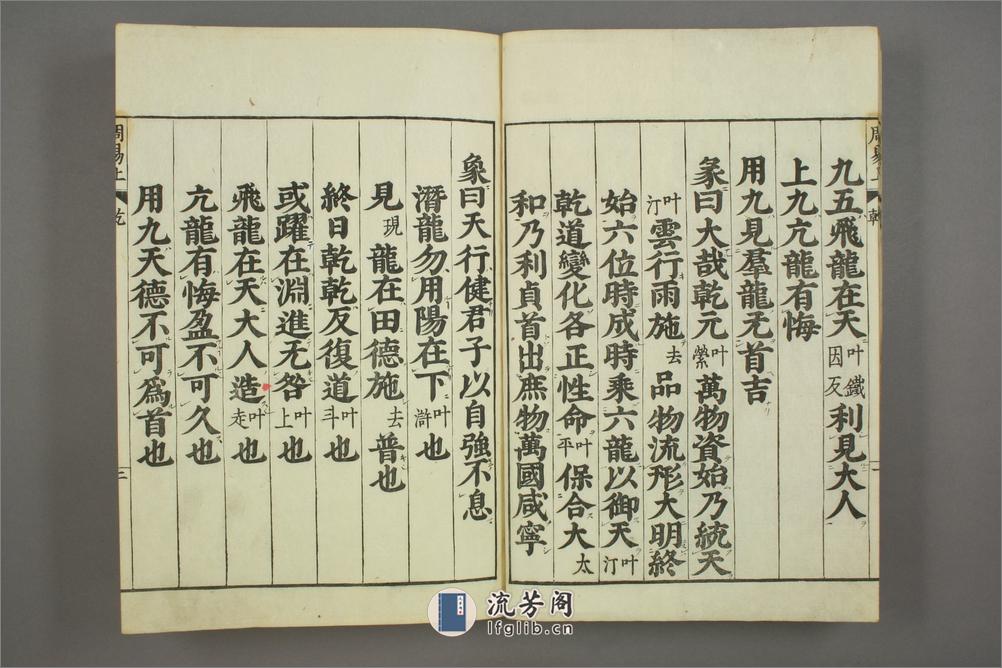 周易上 乾
九五飛龍在天叶鐵因反利見大人
上九亢龍有悔
用九見羣龍无首吉
彖曰大哉乾元叶縈萬物資始乃統天
叶汀雲行雨施去品物流形大明終
始六位時成時乘六龍以御天叶汀
乾道變化各正性命叶平保合大太
和乃利貞首出庶物萬國咸寧
象曰天行健君子以自強不息
潛龍勿用陽在下叶滸也
見現龍在田德施去普也
終日乾乾反復道叶斗也
或躍在淵進无咎叶上也
飛龍在天大人造叶走也
亢龍有悔盈不可久也
用九天德不可爲首也
周易上 乾
流芳阁
lfglib.cn